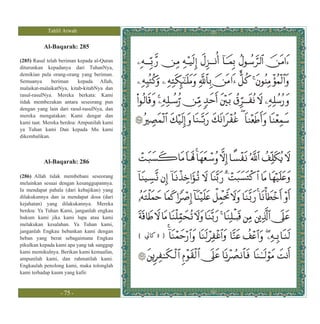 Tahlil Arwah
Al-Baqarah: 285
(285) Rasul telah beriman kepada al-Quran
diturunkan kepadanya dari TuhanNya,
demikian pula orang-orang yang beriman.
Semuanya beriman kepada Allah,
malaikat-malaikatNya, kitab-kitabNya dan
rasul-rasulNya. Mereka berkata: Kami
tidak membezakan antara seseorang pun
dengan yang lain dari rasul-rasulNya, dan
mereka mengatakan: Kami dengar dan
kami taat. Mereka berdoa: Ampunilah kami
ya Tuhan kami Dan kepada Mu kami
dikembalikan.
ءَامَنَ ٱلرَّسُولُ بِمَآ أُنزِلَ إِلَيْهِ مِن رَّبِّهِۦ
وَٱلْمُؤْمِنُونَ ۚ كُلٌّ ءَامَنَ بِٱللَّهِ وَمَلَٰٓئِكَتِهِۦ وَكُتُبِهِۦ
وَرُسُلِهِۦ لَا نُفَرِّقُ بَيْنَ أَحَدٍ مِّن رُّسُلِهِۦ ۚ وَقَالُوا۟
سَمِعْنَا وَأَطَعْنَا ۖ غُفْرَانَكَ رَبَّنَا وَإِلَيْكَ ٱلْمَصِيرُ
Al-Baqarah: 286
(286) Allah tidak membebani seseorang
melainkan sesuai dengan kesanggupannya.
Ia mendapat pahala (dari kebajikan) yang
dilakukannya dan ia mendapat dosa (dari
kejahatan) yang dilakukannya. Mereka
berdoa: Ya Tuhan Kami, janganlah engkau
hukum kami jika kami lupa atau kami
melakukan kesalahan. Ya Tuhan kami,
janganlah Engkau bebankan kami dengan
beban yang berat sebagaimana Engkau
pikulkan kepada kami apa yang tak sanggup
kami memikulnya. Berikan kami kemaafan,
ampunilah kami, dan rahmatilah kami.
Engkaulah penolong kami, maka tolonglah
kami terhadap kaum yang kafir.
لَا يُكَلِّفُ ٱللَّهُ نَفْسًا إِلَّا وُسْعَهَا ۚ لَهَا مَا كَسَبَتْ
وَعَلَيْهَا مَا ٱكْتَسَبَتْ ۗ رَبَّنَا لَا تُؤَاخِذْنَآ إِن نَّسِينَآ
أَوْ أَخْطَأْنَا ۚ رَبَّنَا وَلَا تَحْمِلْ عَلَيْنَآ إِصْرًا كَمَا حَمَلْتَهُۥ
عَلَى ٱلَّذِينَ مِن قَبْلِنَا ۚ رَبَّنَا وَلَا تُحَمِّلْنَا مَا لَا طَاقَةَ
لَنَا بِهِۦ ۖ وَٱعْفُ عَنَّا وَٱغْفِرْ لَنَا وَٱرْحَمْنَآ ۚ
أَنتَ مَوْلَىٰنَا فَٱنصُرْنَا عَلَى ٱلْقَوْمِ ٱلْكَٰفِرِينَ
- 75 -